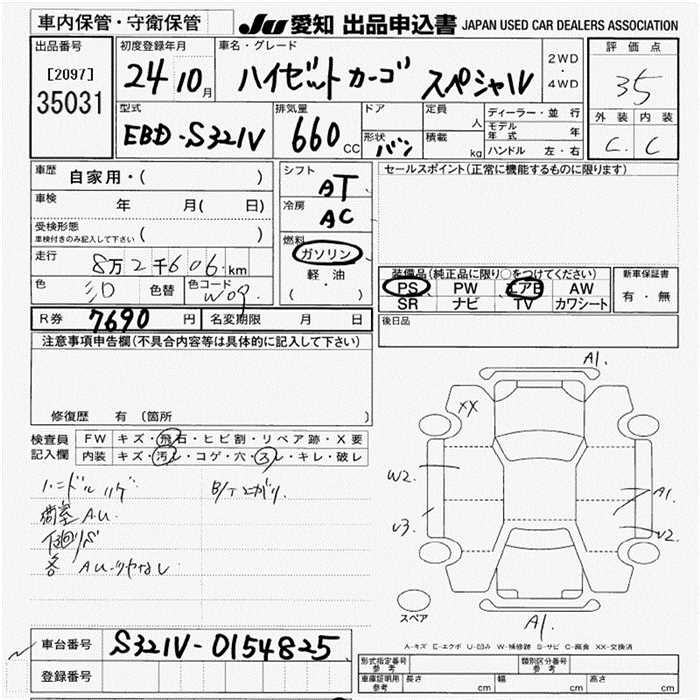 車内保管・守衛保管
JU 愛知 出品申込書 JAPAN USED CAR DEALERS ASSOCIATION
出品番号
[2097]
35031
初度登録年月
24 10月
車名・グレード
ハイゼットカーゴ スペシャル
2WD
・
4WD
評価点
35
外装 内装
C C
型式
EBD-S321V
排気量
660 CC
ドア
形状 バン
定員 人
積載 kg
ディーラー・並行
モデル年式 年
ハンドル 左・右
車歴 自家用・( )
車検 年 月( 日)
受検形態
車検付きのみ記入して下さい ( )
走行 8万2千606 km
色 シロ 色替 色コード W09
シフト AT
冷房 AC
燃料
ガソリン
軽・油
( )
セールスポイント(正常に機能するものに限ります)
装備品(純正品に限り○をつけてください)
PS PW エアB AW
SR ナビ TV カワシート
新車保証書
有・無
後日品
R券 7690 円 名変期限 月 日
注意事項申告欄(不具合内容等は具体的に記入して下さい)
修復歴 有 (箇所
検査員
記入欄
FW キズ・飛石・ヒビ割・リペア跡・X要
内装 キズ・汚レ・コゲ・穴・スレ・キレ・破レ
ハンドルハゲ
B/T上ガリ
荷室A.U.
下廻りS
各AU
A1.
XX
W2.
U3.
A1.
U2.
A1.
スペア
A-キズ E-エクボ U-凹み W-補修跡 S-サビ C-腐食 XX-交換済
車台番号 S321V-0154825
登録番号
型式指定番号
参考
類別区分番号
参考
車庫証明用
参考
長さ cm
幅 cm
高さ cm